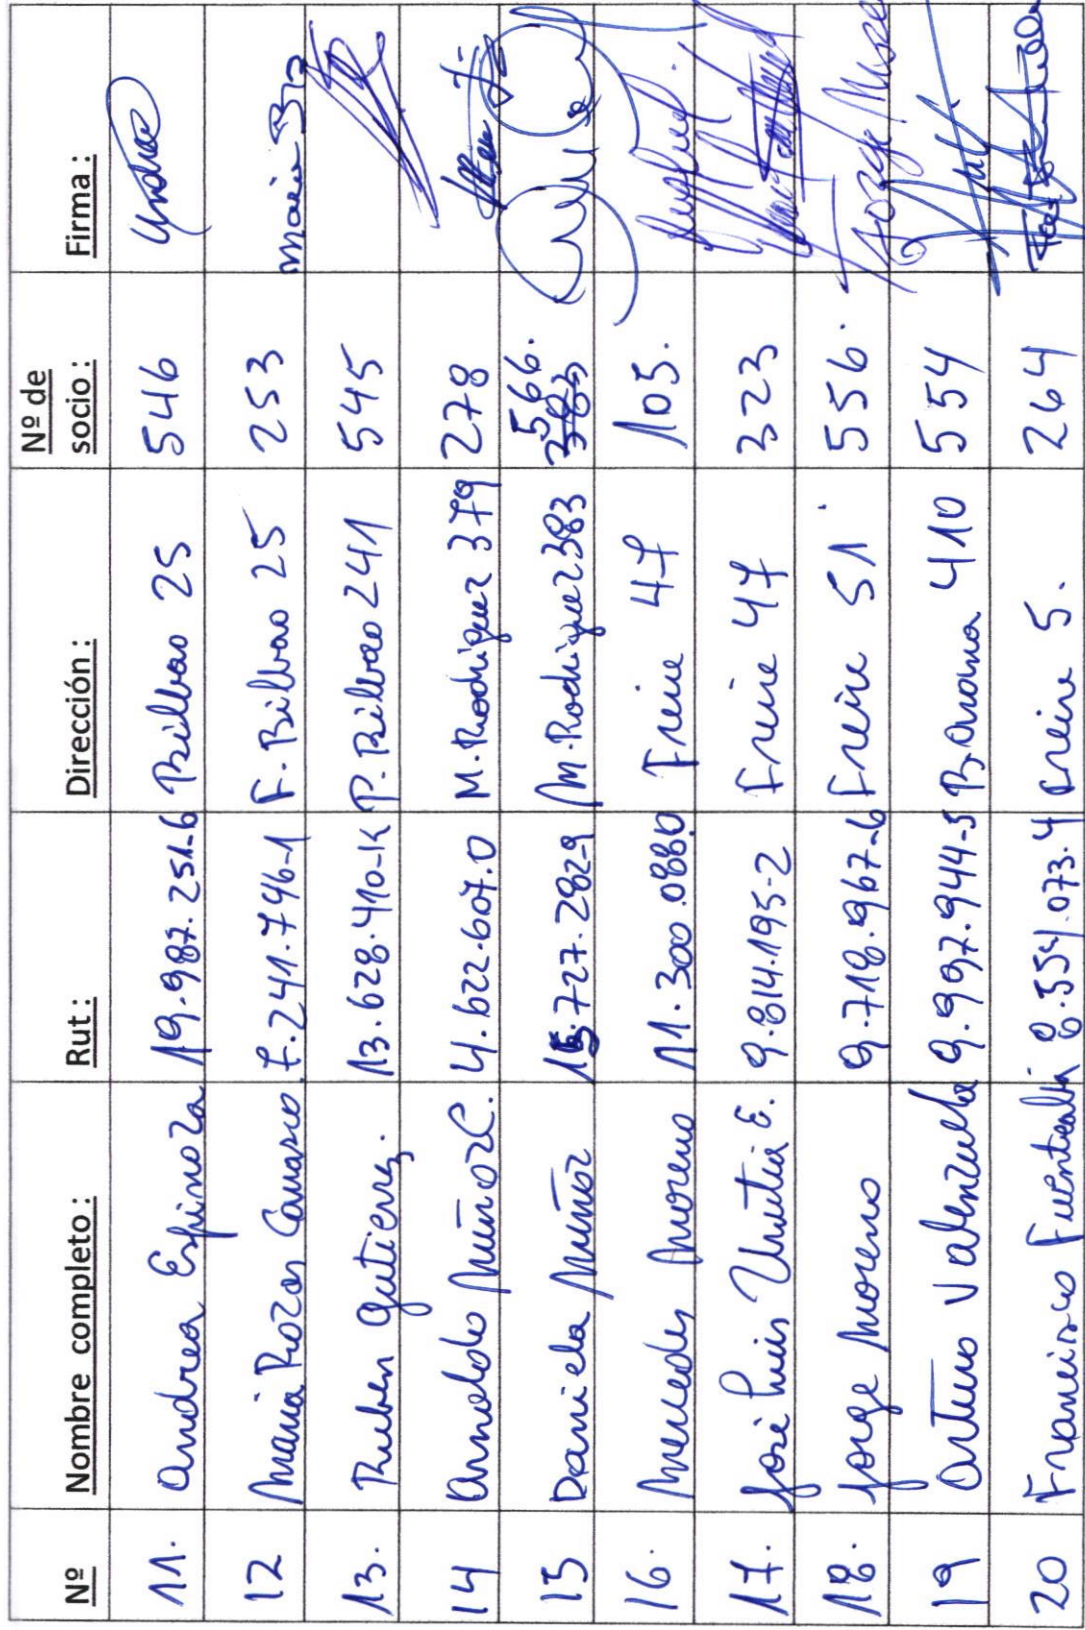 Nº Nombre completo : Rut : Dirección : Nº de socio : Firma :
11. Andrea Espinoza 19.987.251-6 Bilbao 25 546 Andrea
12 Maria Rozas Carrasco 7.241.746-1 F. Bilbao 25 253 Maria
13. Ruben Gutierrez. 13.628.410-K P. Bilbao 241 545
14 Arnoldo Muñoz C. 4.622.607.0 M. Rodriguez 379 278
15 Daniela Muñoz 15.727.282-9 M. Rodriguez 383 566.
16. Mercedes Moreno 11.300.088 Freire 47 105.
17. José Luis Urrutia E. 9.814.195-2 Freire 47 323
18. Jorge Moreno 9.718.967-6 Freire 51 556. Jorge
19 Arturo Valenzuela 9.997.944-5 410 554
20 Francisco Fuentealba 8.554.073.4 Freire 5. 264